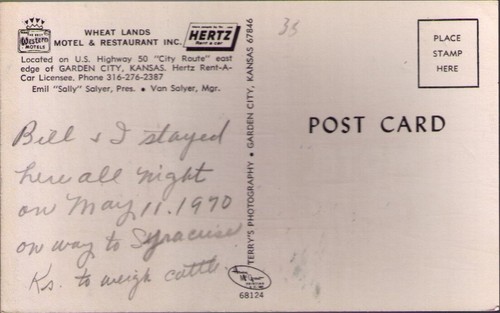 WHEAT LANDS
MOTEL & RESTAURANT INC.
Located on U.S. Highway 50 "City Route" east
edge of GARDEN CITY, KANSAS. Hertz Rent-A-
Car Licensee, Phone 316-276-2387
Emil "Sally" Salyer, Pres. • Van Salyer, Mgr.
Western
MOTELS
HERTZ
Rent a car
Bill & I stayed
here all night
on May 11. 1970
on way to Syracuse
Ks. to weigh cattle.
TERRY'S PHOTOGRAPHY • GARDEN CITY, KANSAS 67846
68124
35
POST CARD
PLACE
STAMP
HERE